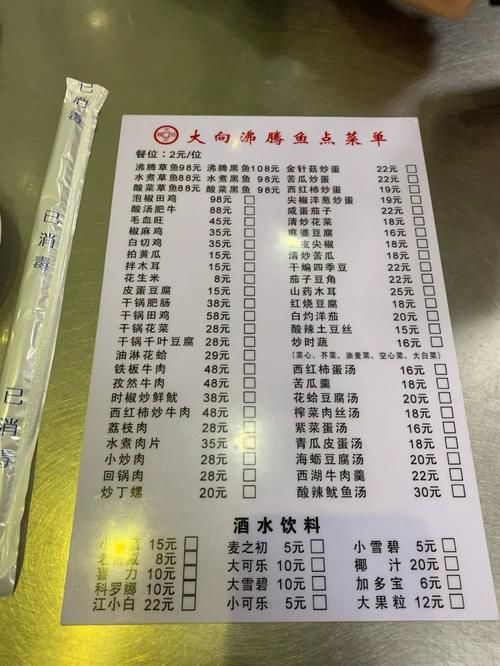 已消毒
已消毒
已消毒
大向沸腾鱼点菜单
餐位：2元/位
沸腾草鱼98元 沸腾黑鱼108元
水煮草鱼88元 水煮黑鱼 98元
酸菜草鱼88元 酸菜黑鱼 98元
泡椒田鸡 98元
酸汤肥牛 88元
毛血旺 45元
椒麻鸡 35元
白切鸡 35元
拍黄瓜 15元
拌木耳 15元
花生米 8元
皮蛋豆腐 18元
干锅肥肠 38元
干锅田鸡 58元
干锅花菜 28元
干锅千叶豆腐 28元
油淋花蛤 29元
铁板牛肉 48元
孜然牛肉 48元
时椒炒鲜鱿 38元
西红柿炒牛肉 48元
荔枝肉 28元
水煮肉片 35元
小炒肉 28元
回锅肉 28元
炒丁螺 20元
金针菇炒蛋 22元
苦瓜炒蛋 22元
西红柿炒蛋 16元
尖椒洋葱炒蛋 22元
咸蛋茄子 22元
清炒花菜 18元
麻婆豆腐 16元
皮尖椒 16元
清炒苦瓜 18元
干煸四季豆 22元
茄子豆角 22元
山药木耳 25元
红烧豆腐 18元
白灼洋茄 20元
酸辣土豆丝 18元
炒时蔬 16元
（菜心、芥菜、油麦菜、空心菜、大白菜）
西红柿蛋汤 16元
苦瓜羹 18元
花蛤豆腐汤 20元
榨菜肉丝汤 18元
紫菜蛋汤 16元
青瓜皮蛋汤 18元
海蛎豆腐汤 20元
西湖牛肉羹 22元
酸辣鱿鱼汤 30元
酒水饮料
15元 麦之初 5元 小雪碧 5元
8元 大可乐 10元 椰汁 20元
喜力 10元 大雪碧 10元 加多宝 6元
科罗娜 10元 小可乐 5元 大果粒 12元
江小白 22元